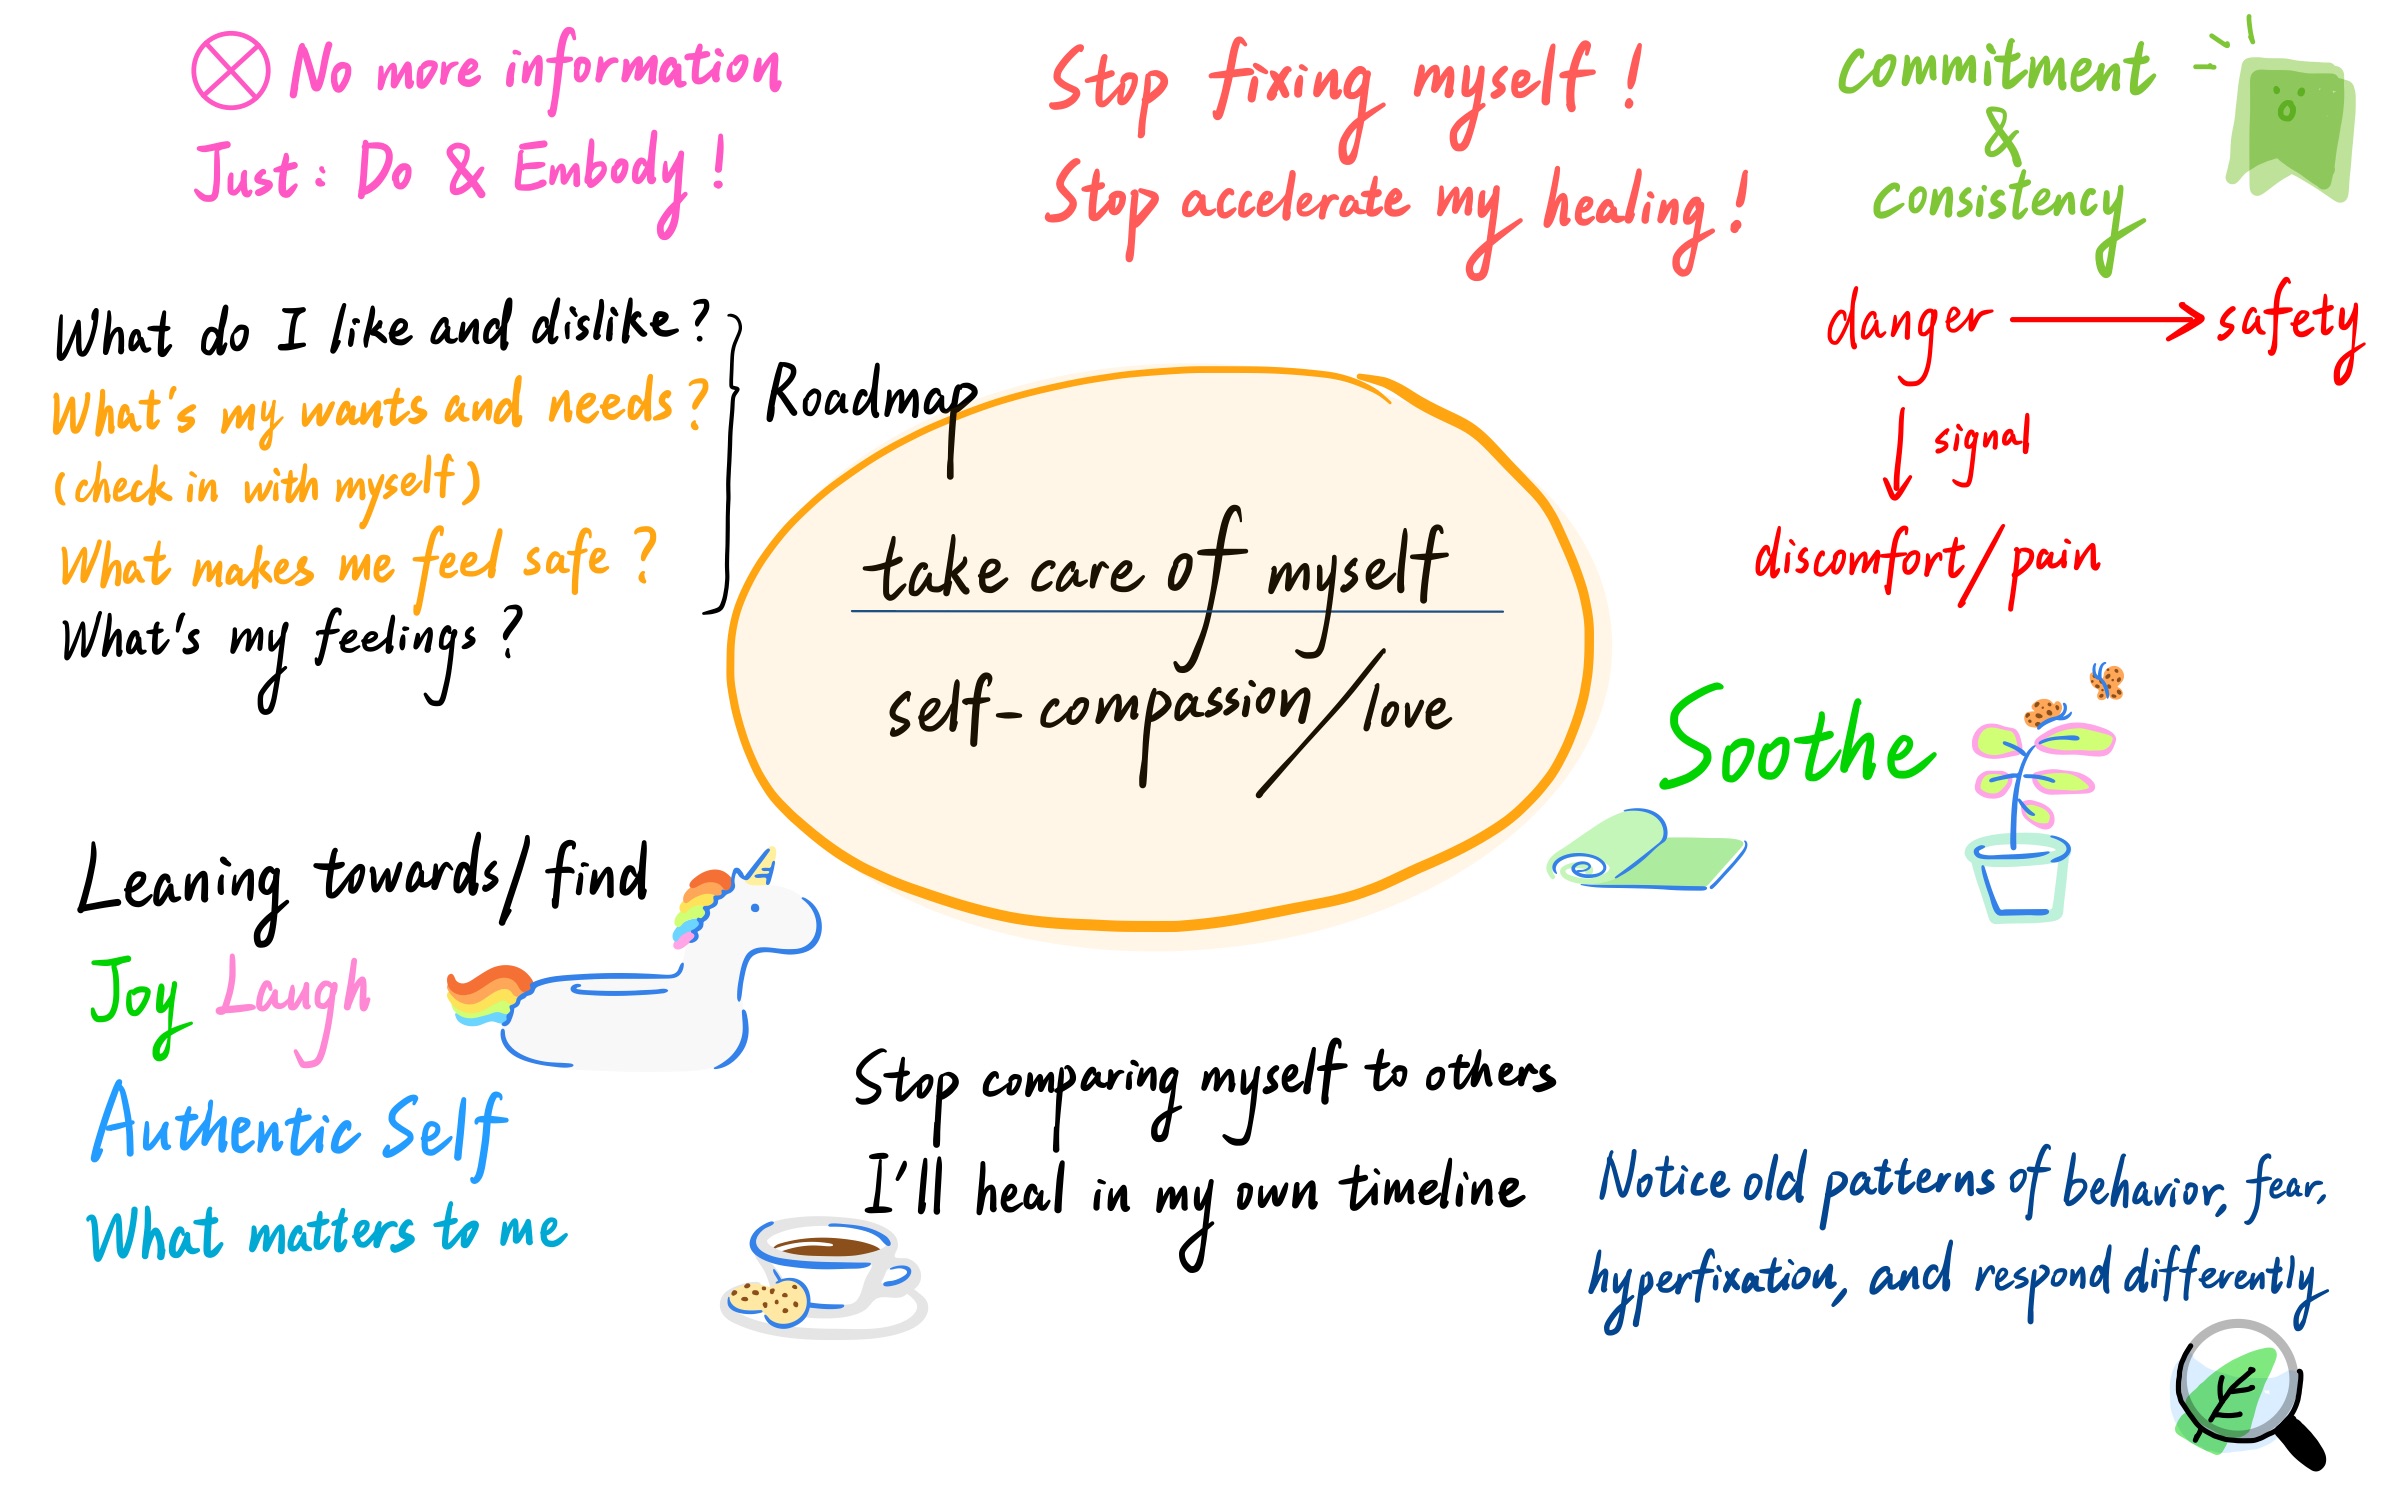 No more information
Just: Do & Embody!
Stop fixing myself!
Stop accelerate my healing!
commitment
&
consistency
What do I like and dislike?
What's my wants and needs?
(check in with myself)
What makes me feel safe?
What's my feelings?
Roadmap
danger → safety
↓ signal
discomfort/pain
take care of myself
self-compassion/love
Soothe
Leaning towards/find
Joy Laugh
Authentic Self
What matters to me
Stop comparing myself to others
I'll heal in my own timeline
Notice old patterns of behavior, fear,
hyperfixation, and respond differently